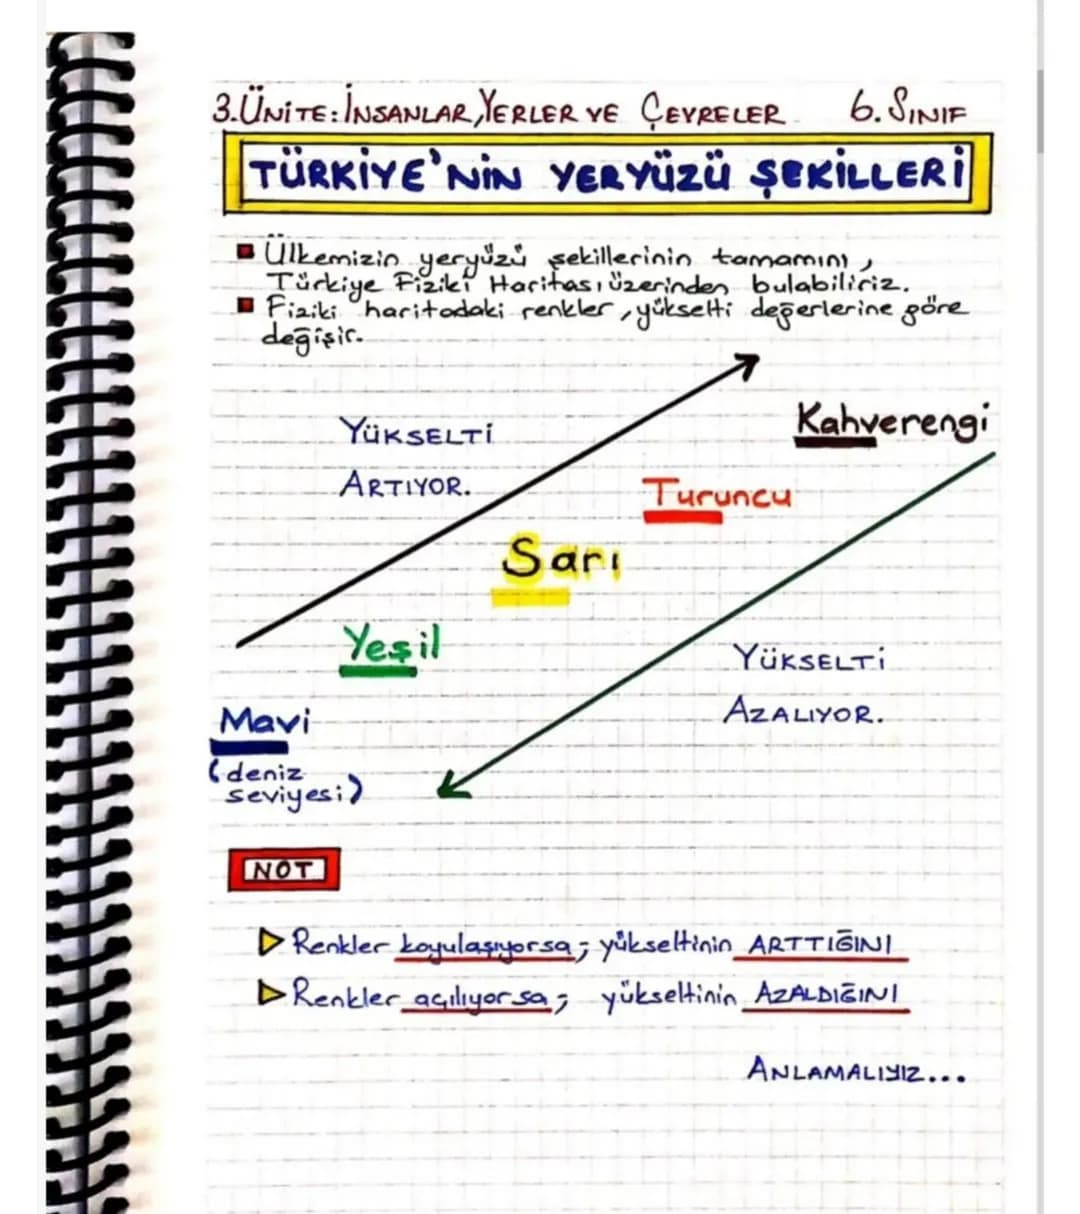 3.ÜNİTE: İNSANLAR, YERLER VE ÇEVRELER 6. SINIF
TÜRKİYE'NİN YERYÜZÜ ŞEKİLLERİ
Ülkemizin yeryüzü şekillerinin tamamını,
Türkiye Fiziki Haritası üzerinden bulabiliriz.
Fiziki haritadaki renkler, yükselti değerlerine göre
değişir.
Kahverengi
YÜKSELTİ
ARTIYOR.
Turuncu
Sarı
Yeşil
YÜKSELTİ
AZALIYOR.
Mavi
(deniz
seviyesi)
NOT
Renkler koyulaşıyorsa; yükseltinin ARTTIĞINI
Renkler açılıyorsa; yükseltinin AZALDIĞINI
ANLAMALIYIZ...